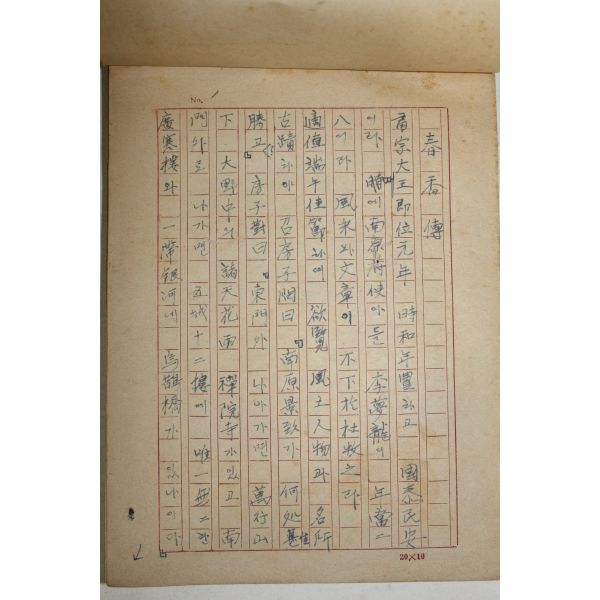 No. 1
春香傳
肅宗大王即位元年 時和年豊하고 國泰民安
이라 時에 南原府使아들 李夢龍이 年當二
八이라 風采와 文章이 不下於杜牧之라
適値端午佳節하여 欲覽 風土人物과 名所
古蹟하야 召房子問曰 『南原景致가 何処甚佳
勝고』 房子對曰 『東門外 나아가면 萬行山
下 大野中의 諸天花雨 禪院寺가 있고 南
門外로 나가면 五城十二樓에 唯一無二한
廣寒樓와 一帶銀河에 烏鵲橋가 있나이다
20×10